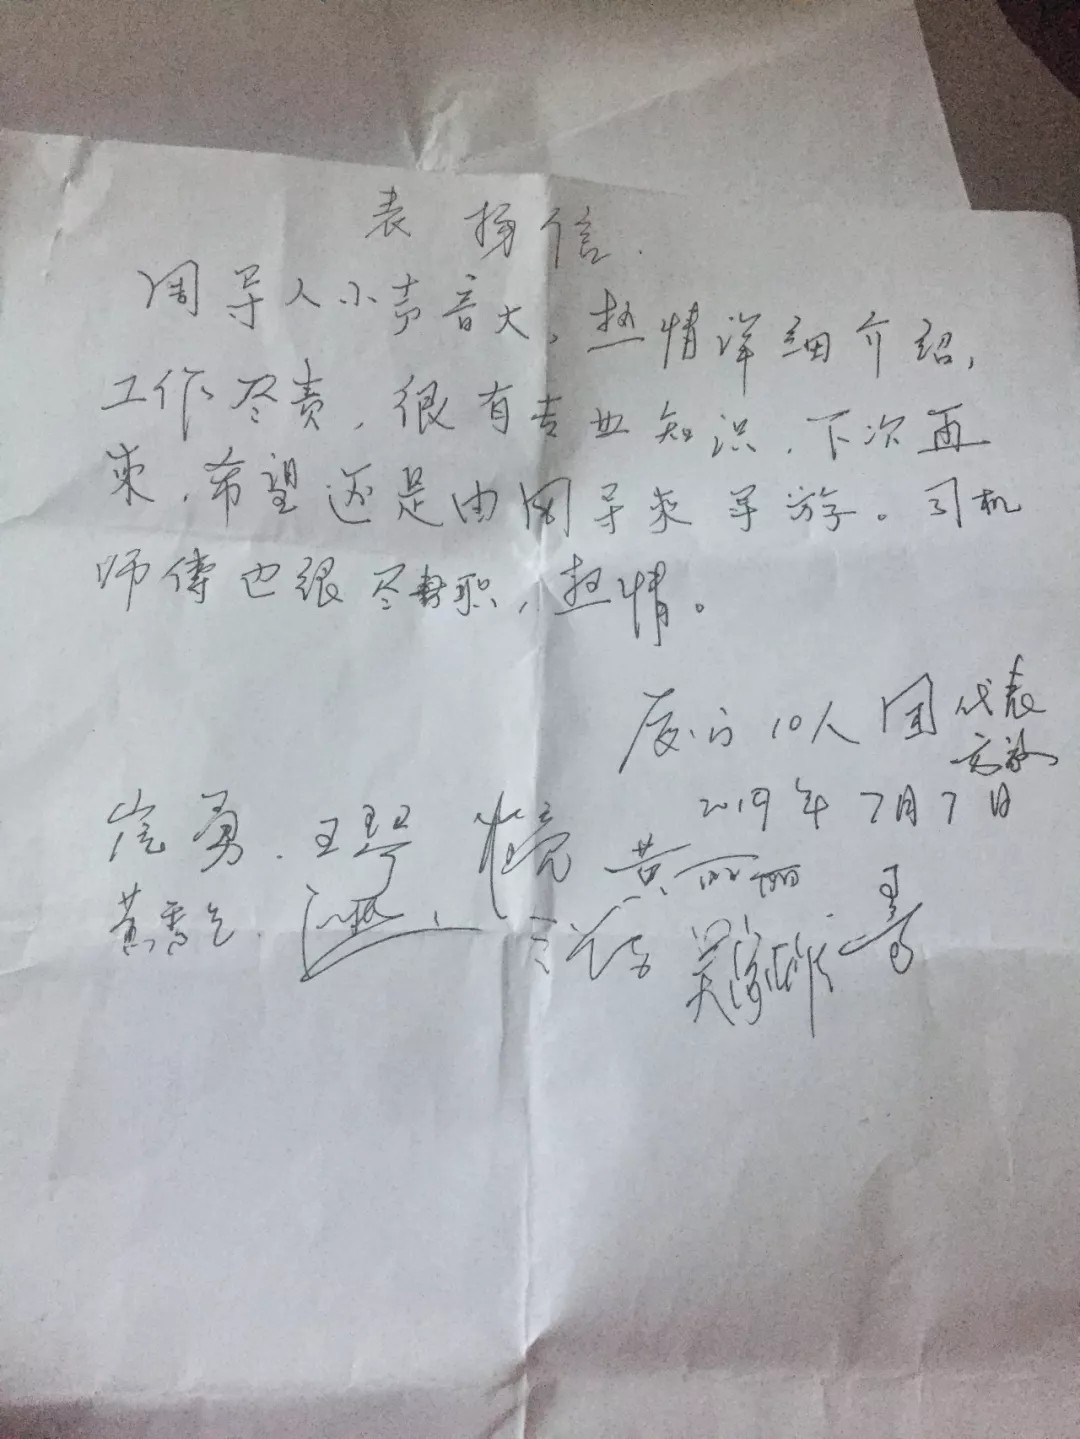 表扬信.
周导人小声音大，热情详细介绍，
工作尽责，很有专业知识，下次再
来，希望还是由周导来导游。司机
师傅也很尽职，热情。
厦门10人团代表
2019年7月7日
崔勇.王琴
黄丽丽
黄秀
吴家雄